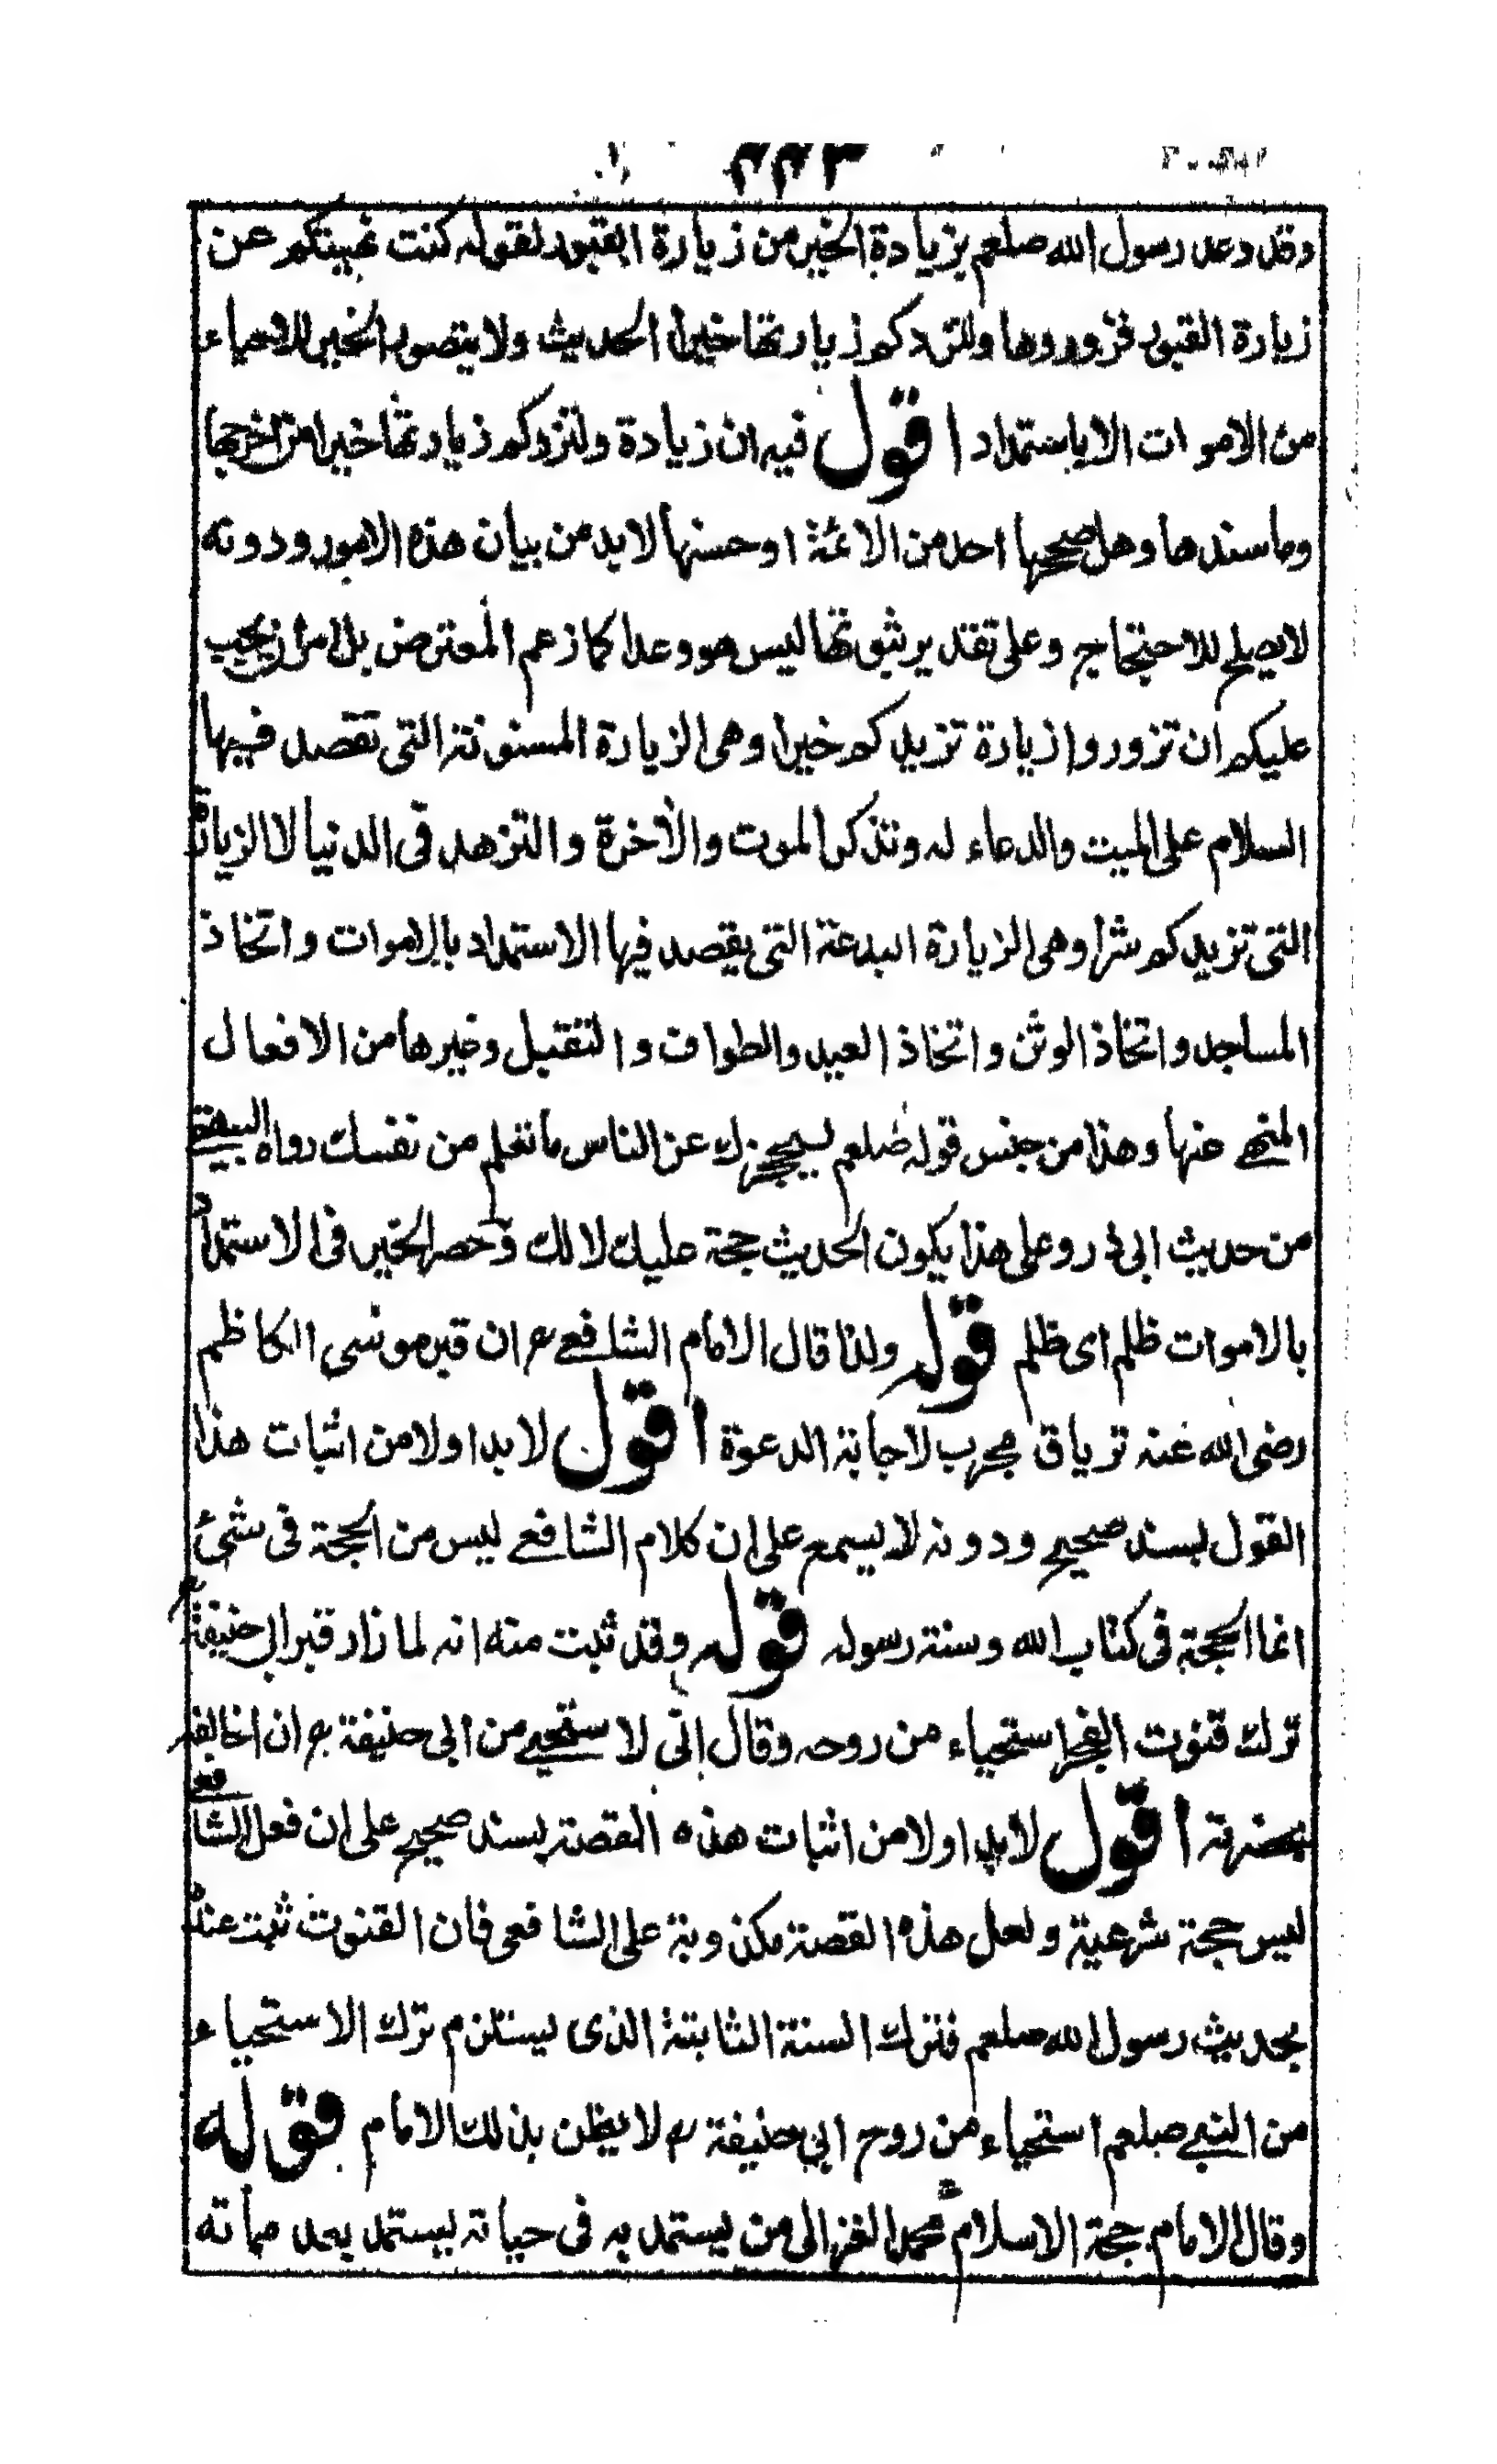 ٢٢٣
وقد وعد رسول الله صلعم بزيادة الخير من زيارة القبور لقوله كنت نهيتكم عن
زيارة القبور فزوروها ولتزدكم زيارتها خيرا الحديث ولا يتصور الخير للاحياء
من الاموات الا باستمداد اقول فيه ان زيادة ولتزدكم زيارتها خيرا من اخرجها
وما سندها وهل صححها احد من الائمة او حسنها لا بد من بيان هذه الامور ودونه
لا يصلح للاحتجاج وعلى تقدير ثبوتها ليس هو وعدا كما زعم المعترض بل امر اي يجب
عليكم ان تزوروا زيارة تزيدكم خيرا وهى الزيارة المسنونة التى تقصد فيها
السلام على الميت والدعاء له وتذكر الموت والآخرة والتزهد فى الدنيا لا الزيارة
التى تزيدكم شرا وهى الزيارة البدعة التى يقصد فيها الاستمداد بالاموات واتخاذ
المساجد واتخاذ الوثن واتخاذ العيد والطواف والتقبيل وغيرها من الافعال
المنهى عنها وهذا من جنس قوله صلعم ليحجزك عن الناس ما تعلم من نفسك رواه البيهقى
من حديث ابى ذر وعلى هذا يكون الحديث حجة عليك لا لك وحصر الخير فى الاستمداد
بالاموات ظلم اى ظلم قوله ولذا قال الامام الشافعى رح ان قبر موسى الكاظم
رضى الله عنه ترياق مجرب لاجابة الدعوة اقول لا بد اولا من اثبات هذا
القول بسند صحيح ودونه لا يسمع على ان كلام الشافعى ليس من الحجة فى شئ
انما الحجة فى كتاب الله وسنة رسوله قوله وقد ثبت منه انه لما زار قبر ابى حنيفة رح
ترك قنوت الفجر استحياء من روحه وقال انى لا ستحيى من ابى حنيفة رح ان اخالفه
بحضرته اقول لا بد اولا من اثبات هذه القصة بسند صحيح على ان فعل الشافعى
ليس حجة شرعية ولعل هذه القصة مكذوبة على الشافعى فان القنوت ثبت عنده
بحديث رسول الله صلعم فترك السنة الثابتة الذى يستلزم ترك الاستحياء
من النبى صلعم استحياء من روح ابى حنيفة رح لا يظن بذلك الامام قوله
وقال الامام حجة الاسلام محمد الغزالى من يستمد به فى حياته يستمد بعد مماته